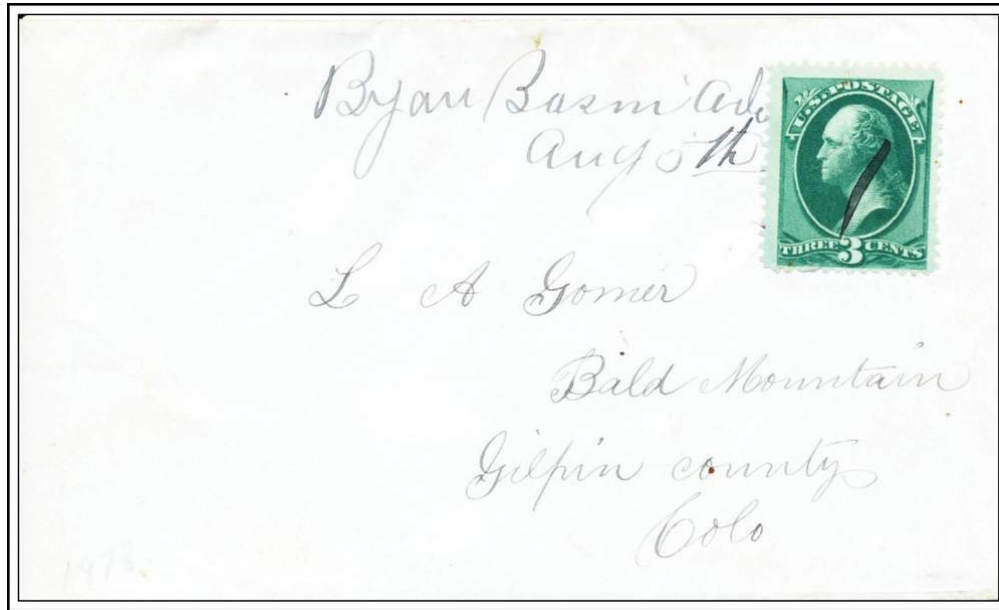 Byan Basin
Aug 5th
U.S. POSTAGE
THREE 3 CENTS
L A Gomer
Bald Mountain
Gilpin county
Colo